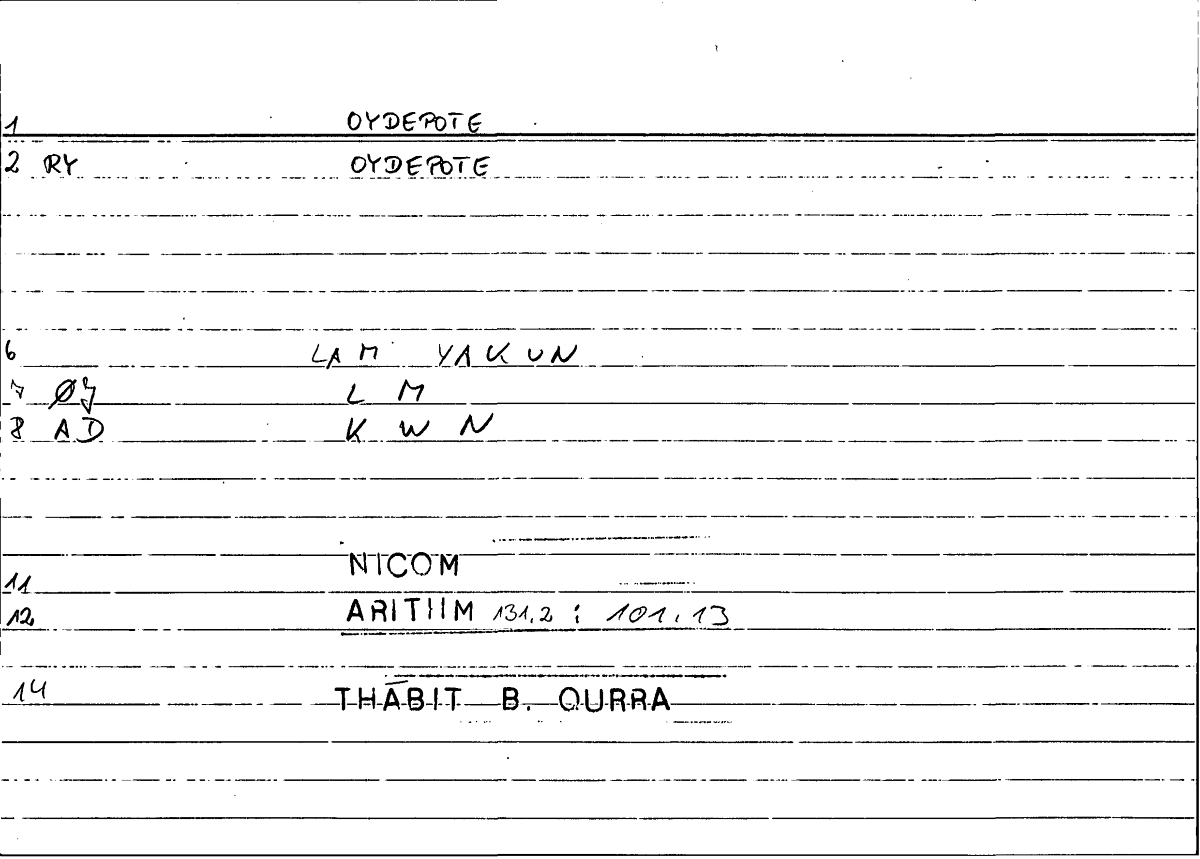 1 OYDEPOTE
2 RY OYDEPOTE
6 LAM YAKUN
7 L M
8 AD K W N
11 NICOM
12 ARITHM 131,2 : 101.13
14 THĀBIT B. QURRA